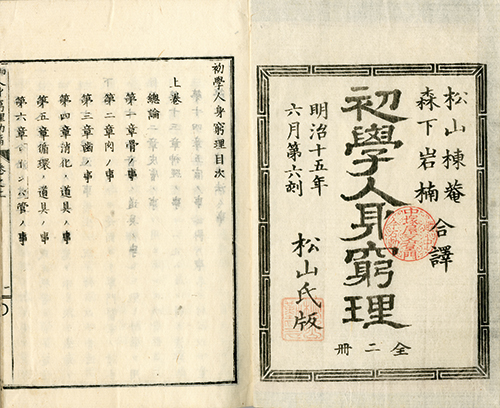 松山棟庵
森下岩楠
合譯
初學人身窮理
明治十五年
六月第六刻
松山氏版
全二冊
初學人身窮理目次
上巻
總論
第一章骨ノ事
第二章肉ノ事
第三章齒ノ事
第四章消化ノ道具ノ事
第五章循環ノ道具ノ事
第六章
管ノ事